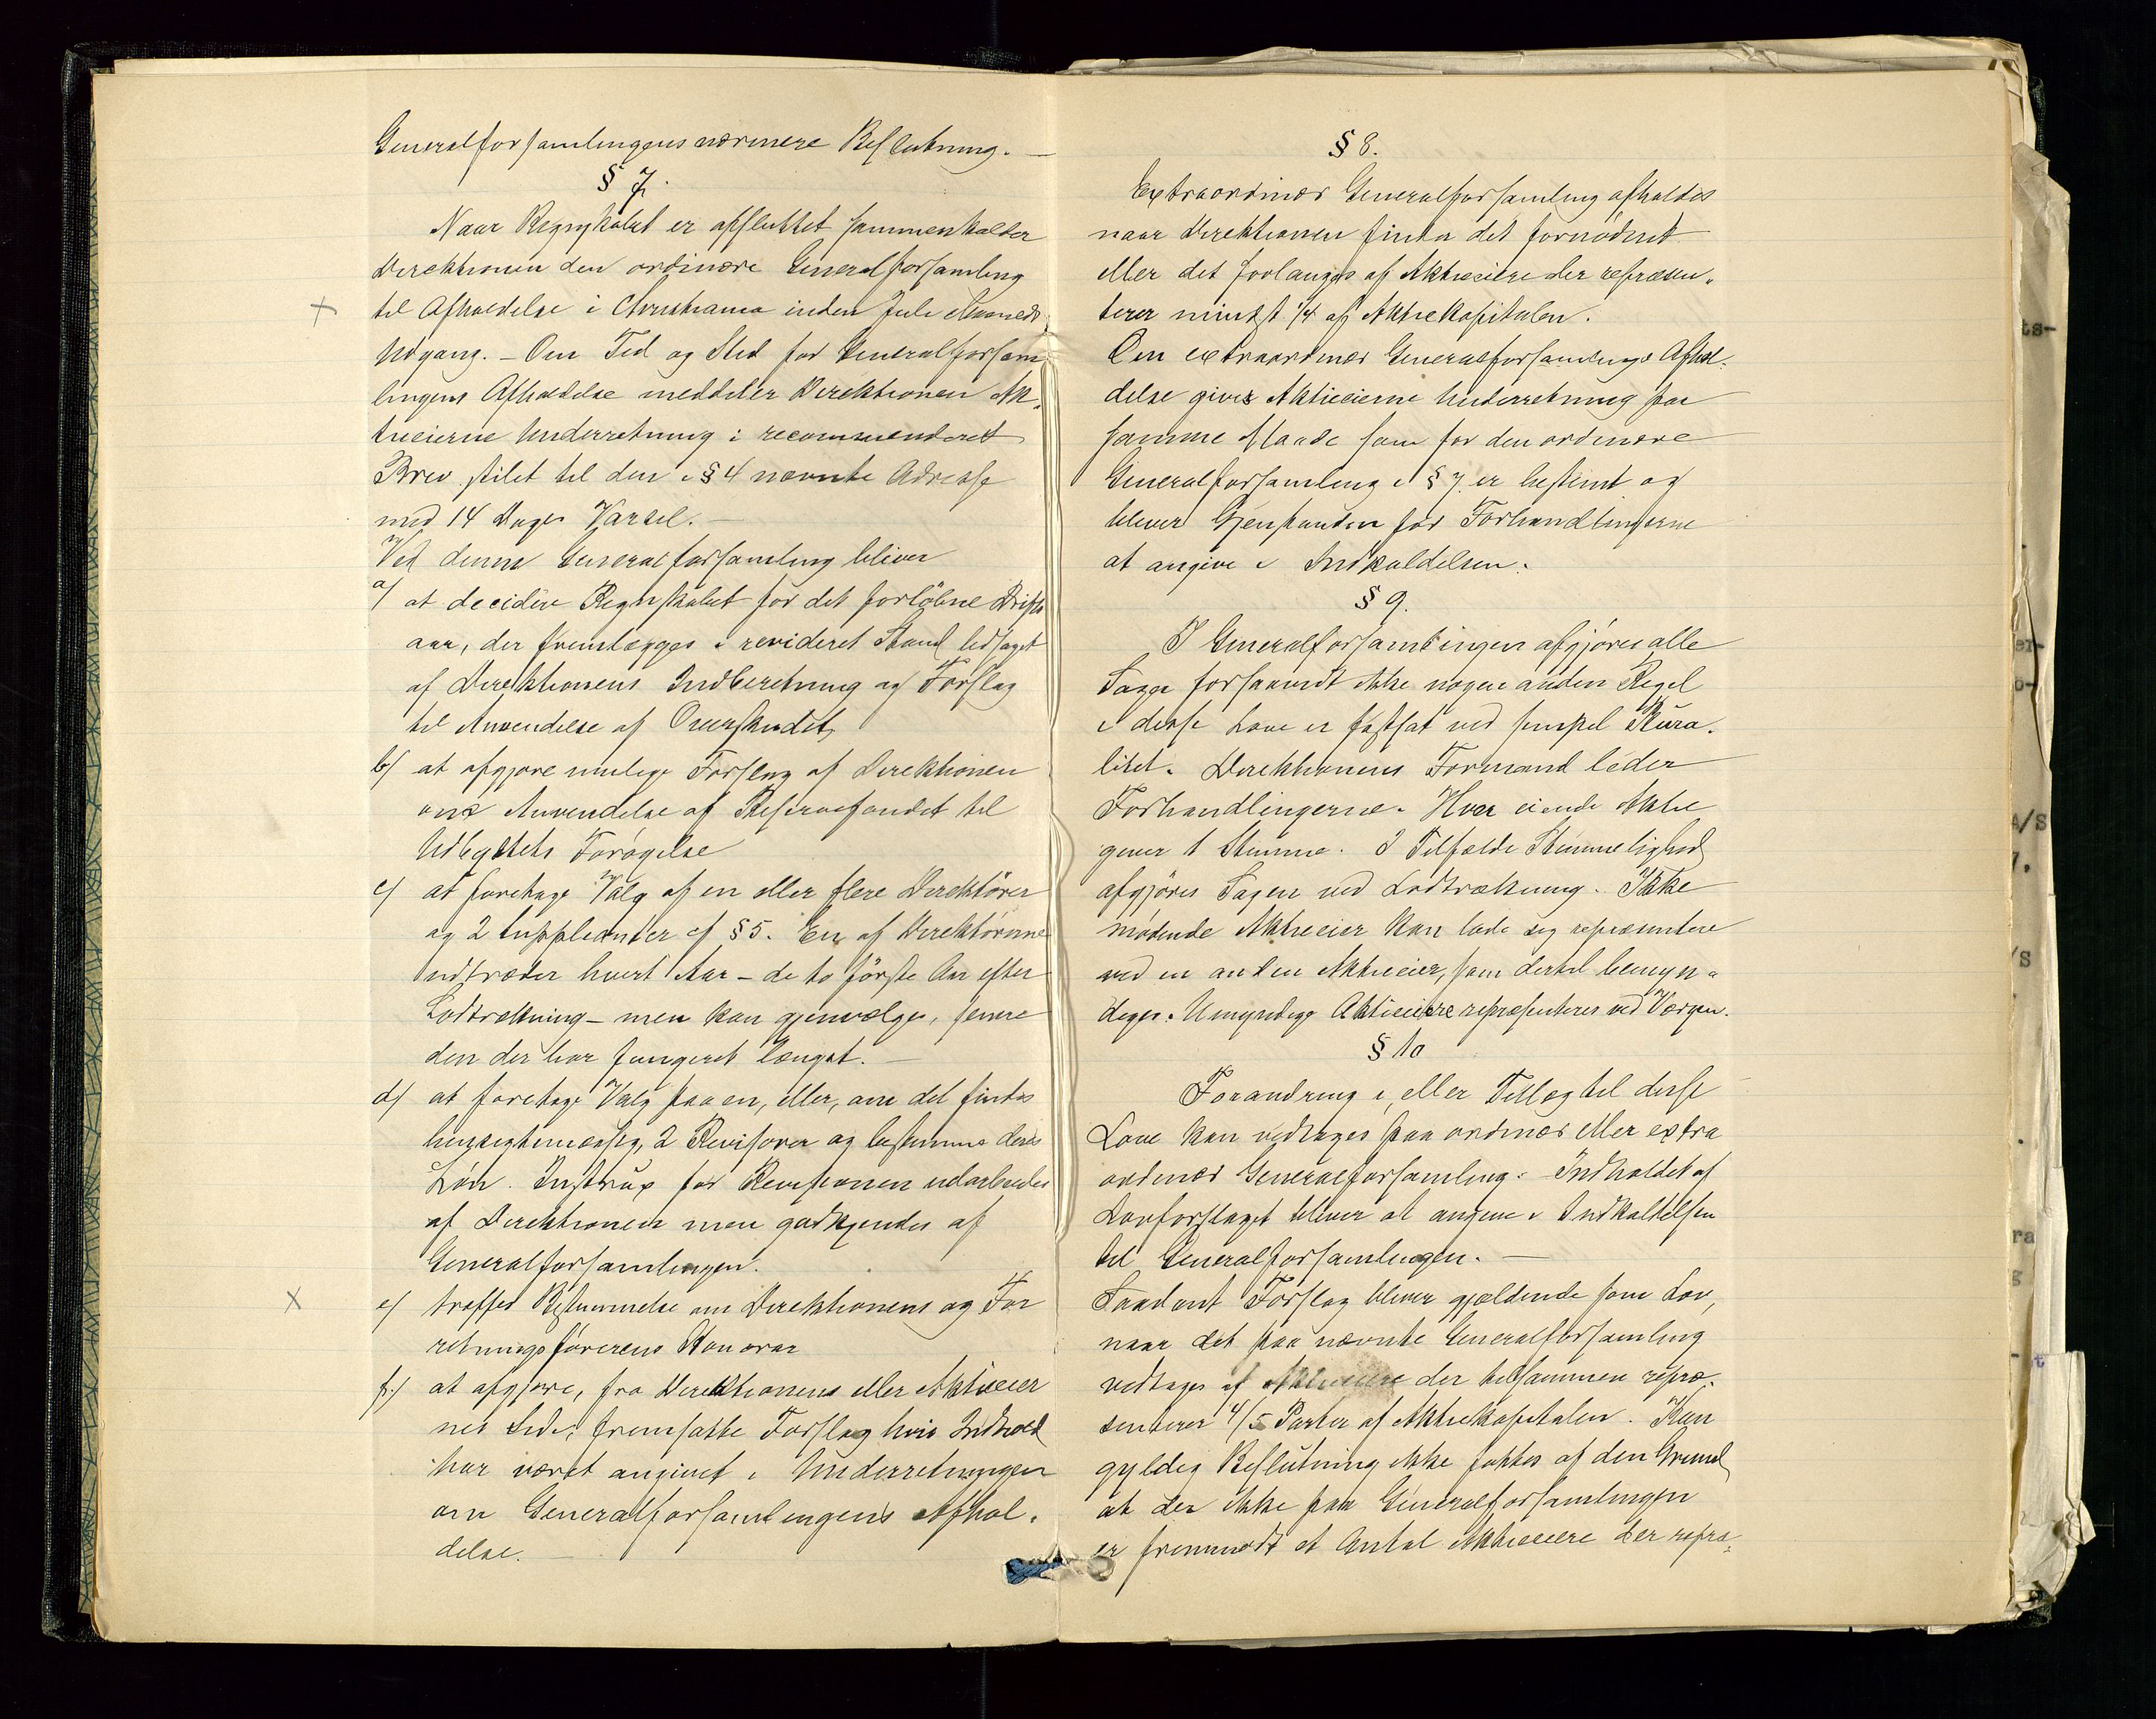 Generalforsamlingens nærmere Beslutning. —
§ 7.
Naar Regnskabet er afsluttet sammenkalder
Direktionen den ordinære Generalforsamling
til Afholdelse i Christiania inden Juli Maaneds
Udgang. – Om Tid og Sted for Generalforsam
lingens Afholdelse meddeler Direktionen Ak,
tieeierne Underretning i recommenderet
Brev stilet til den i § 4 nævnte Adresse
med 14 Dages Varsel. —
Ved denne Generalforsamling bliver
a/ at decidere Regnskabet for det forløbne Drifts
aar, der fremlægges i revideret Stand ledsaget
af Direktionens Indberetning og Forslag
til Anvendelse af Overskudet,
b/ at afgjøre mulige Forslag af Direktionen
om Anvendelse af Reservefondet til
Udbyttets Forøgelse
c/ at foretage Valg af en eller flere Direktører
og 2 Suppleanter cf § 5. En af Direktørerne
udtræder hvert Aar – de to første Aar efter
Lodtrækning – men kan gjenvælges, senere
den der har fungeret længst. —
d/ at foretage Valg paa en, eller, om det findes
hensigtsmæssig, 2 Revisorer og bestemme deres
Løn. Instrux for Revisionen udarbeides
af Direktionen men godkjendes af
Generalforsamlingen.
e/ træffes Bestemmelse om Direktionens og For
retningsførerens Honorar
f.) at afgjøre, fra Direktionens eller Aktieeier
nes Side, fremsatte Forslag hvis Indhold
har været angivet i Underretningen
om Generalforsamlingens Afhol.
delse. —
§ 8.
Extraordinær Generalforsamling afholdes
naar Direktionen finder det fornødent
eller det forlanges af Aktieeiere der repræsen,,
terer mindst 1/4 af Aktiekapitalen.
Om extraordinær Generalforsamlings Afhol,
delse gives Aktieeierne Underretning paa
samme Maade som for den ordinære
Generalforsamling i § 7 er bestemt og
bliver Gjenstanden for Forhandlingerne
at angive i Indkaldelsen.
§ 9.
I Generalforsamlingen afgjøres alle
Sager forsaavidt ikke nogen anden Regel
i disse Love er fastsat ved simpel Plura.
litet. Direktionens Formand leder
Forhandlingerne. Hver eiende Aktie
giver 1 Stemme. I Tilfælde Stemmelighed
afgjøres Sagen ved Lodtrækning. Ikke
mødende Aktieeier kan lade sig repræsentere
ved en anden Aktieeier, som dertil bemyn=
diges. Umyndige Aktieeiere repræsenteres ved Værgen.
§ 10
Forandring i, eller Tillæg til disse
Love kan vedtages paa ordinær eller extra
ordinær Generalforsamling. Indholdet af
Lovforslaget bliver at angive i Indkaldelsen
til Generalforsamlingen. —
Saadant Forslag bliver gjældende som Lov,
naar det paa nævnte Generalforsamling
vedtages af Aktieeiere der tilsammen repræ.
senterer 4/5 Parter af Aktiekapitalen. Kan
gyldig Beslutning ikke fattes af den Grund
at der ikke paa Generalforsamlingen
er fremmødt et Antal Aktieeiere der repræ,